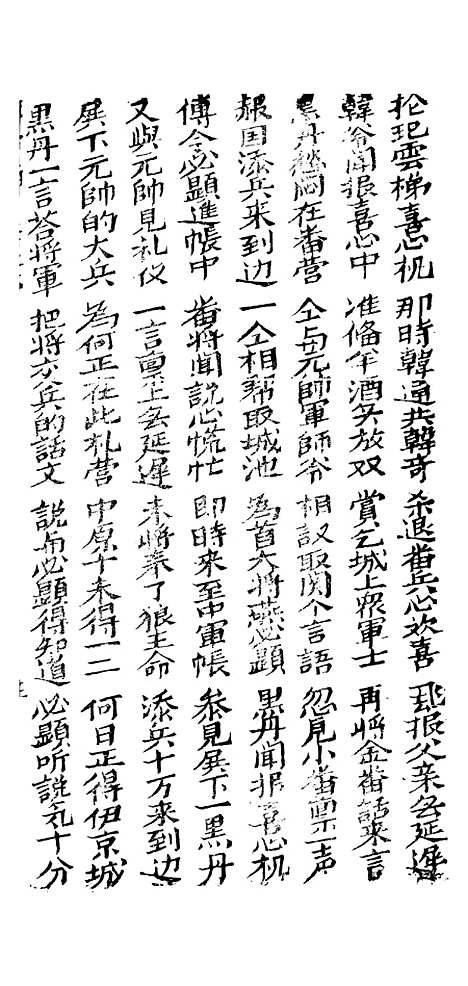 抡圯雲梯喜心机 那時韓通共韓奇 杀退番兵心欢喜 飛报父亲無延遲
韓爺闻报喜心中 准俻羊酒笑放双 賞乞城上衆軍士 再將金番話來言
黑丹愁闷在番营 仝与元帥軍師爷 相議取関个言語 忽見小番禀一声
赧国添兵来到边 一仝相幇取城池 為首大将燕必顕 黑丹闻报喜心机
傳令必顕進帳中 番將闻説心慌忙 即時來至中軍帳 参見展下一黑丹
又與元帥見礼仪 一言禀上無延遲 末將奉了狼主命 添兵十万来到边
展下元帥的大兵 為何正在此札营 中原十未得一二 何日正得伊京城
黑丹一言荅將軍 把將交兵的話文 說与必顕得知道 必顕听説気十分